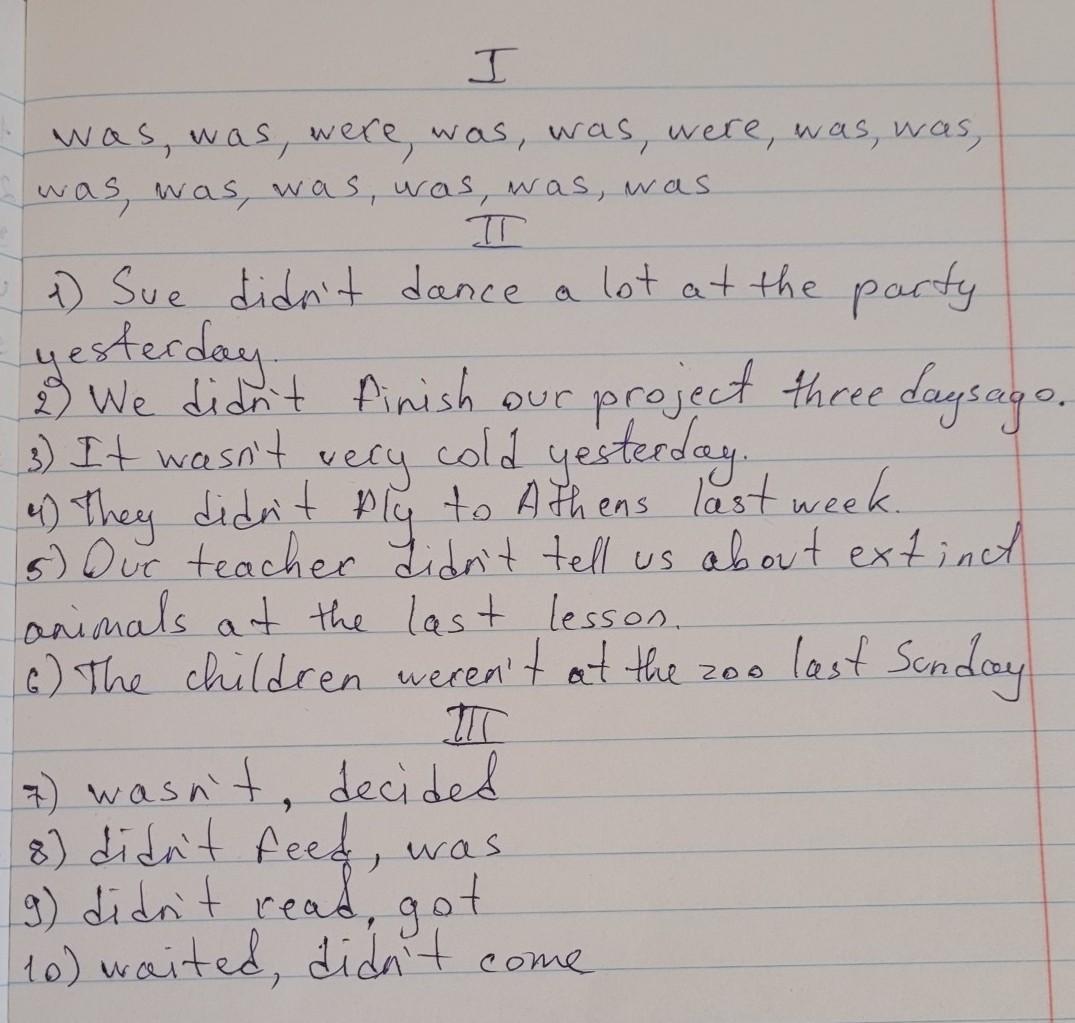 I
was, was, were, was, was, were, was, was,
was, was, was, was, was, was
II
1) Sue didn't dance a lot at the party
yesterday.
2) We didn't finish our project three days ago.
3) It wasn't very cold yesterday.
4) They didn't fly to Athens last week.
5) Our teacher didn't tell us about extinct
animals at the last lesson.
6) The children weren't at the zoo last Sunday
III
7) wasn't, decided
8) didn't feed, was
9) didn't read, got
10) waited, didn't come